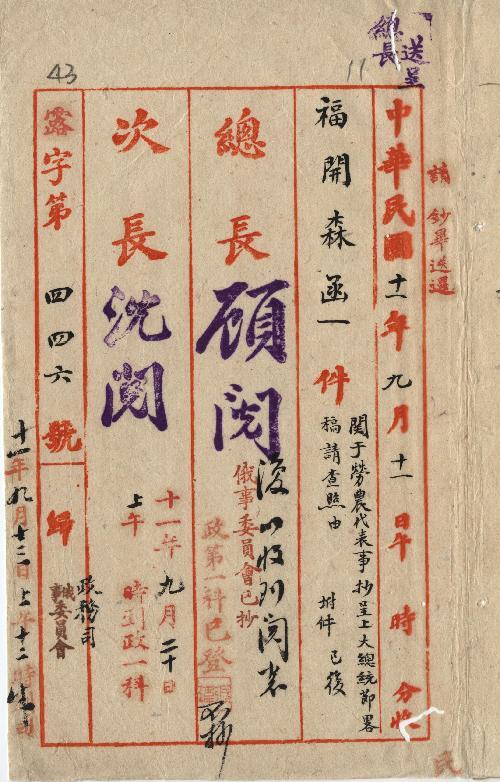 送呈
總長
請鈔畢送還
中華民國十一年九月十一日午 時 分收
福開森函一件
關于勞農代表事抄呈上大總統節畧
稿請查照由 附件 已復
總長 顧閱
復
俄事委員會已抄
政第一科已登
次長 沈閱
十一年九月二十日
上午 時到政一科
露字第四四六號
歸
政務司
俄事委員會
十一年九月十三日上午十二時
43
11
民